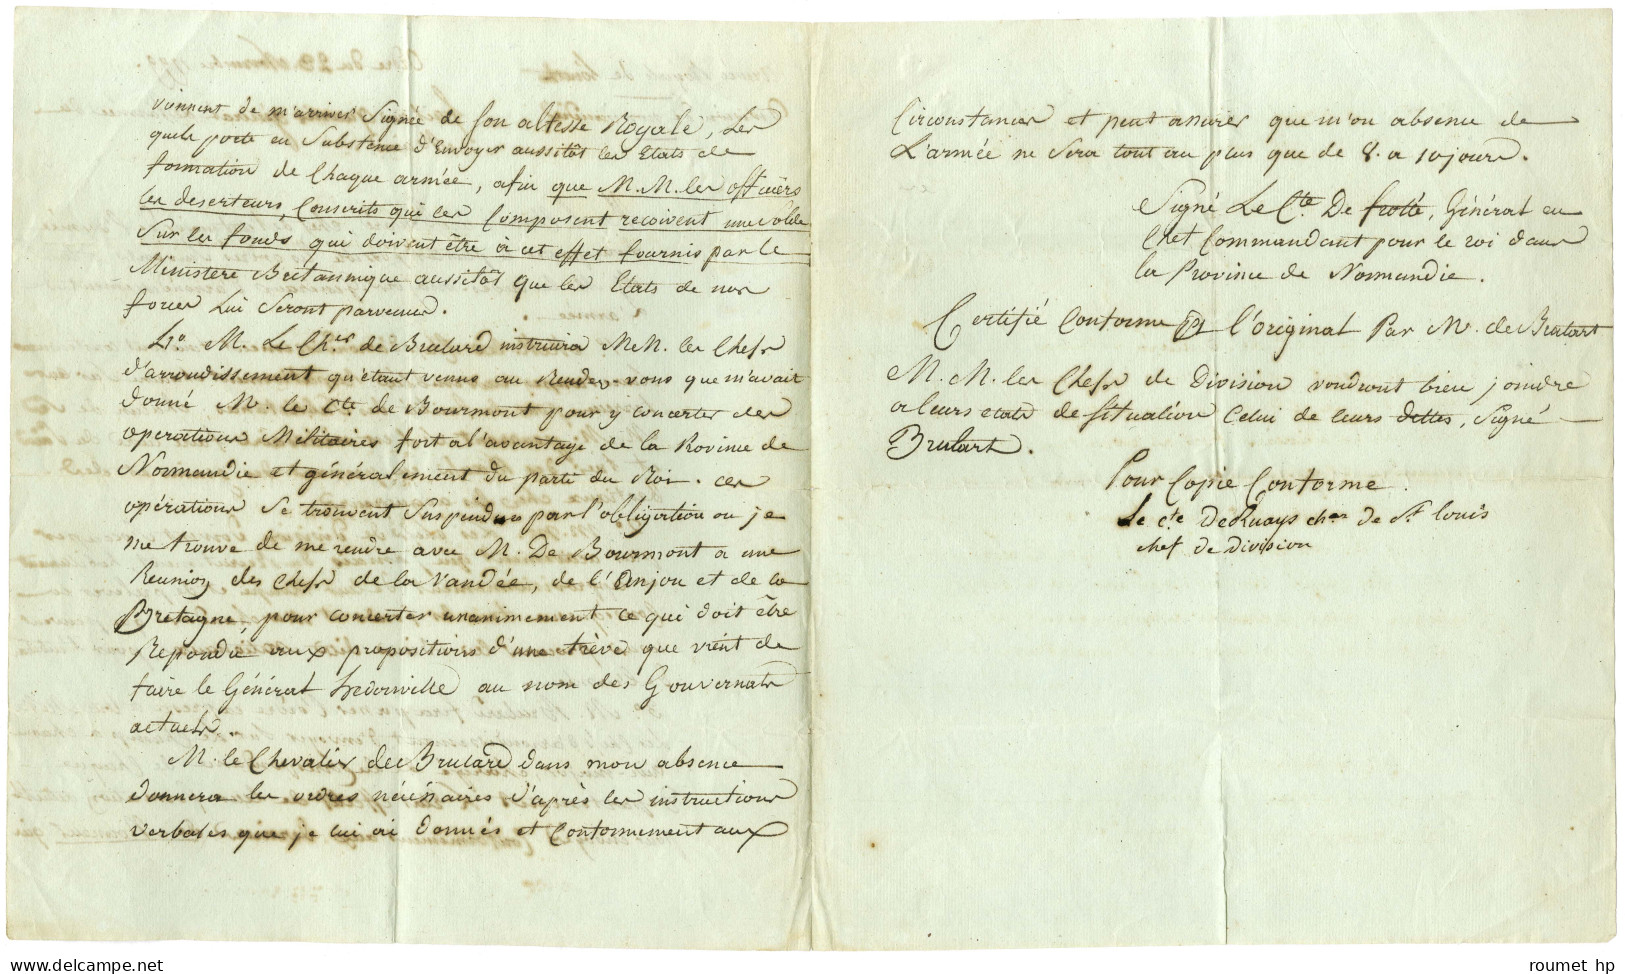 viennent de m'arriver Signée de Son altesse Royale, Les
quels porte en Substance d'Envoyer aussitôt les Etats de
formation de Chaque armée, afin que M.M. les officiers
les deserteurs, Conscrits qui les Composent recoivent une Solde
Sur les fonds qui doivent être à cet effet fournis par le
Ministere Britannique aussitôt que les Etats de nos
forces Lui Seront parvenus.
M. Le Ch.er de Brulard instruira M.M. les Chefs
d'arrondissement qu'étant venus au Rendez-vous que m'avait
donné M. le Cte de Bourmont pour y concerter des
operations Militaires fort a l'avantage de la Rovince de
Normandie et généralement du parti du Roi. ces
opérations Se trouvent Suspendues par l'obligation ou je
me trouve de me rendre avec M. De Bourmont a une
Reunion des Chefs de la Vandée, de l'Anjou et de la
Bretagne, pour concerter unanimement ce qui doit être
Repondu aux propositions d'une trève que vient de
faire le Général hedouville au nom des Gouvernants
actuels.
M. le Chevalier de Brulard dans mon absence
donnera les ordres nécéssaires d'après les instructions
verbales que je lui ai donnés et Conformement aux
Circonstances et peut assurer que m'on absence de
L'armée ne Sera tout au plus que de 8. a 10 jours.
Signé Le Cte. De frotté, Général en
Chef Commandant pour le roi dans
la Province de Normandie.
Certifié Conforme a l'original Par M. de Brulart
M. M. les Chefs de Division voudront bien joindre
a leurs etats de Situation Celui de leurs dettes, Signé
Brulart.
Pour Copie Conforme.
Le cte DeRuays cher de St Louis
chef de division
roumet hp
www.delcampe.net